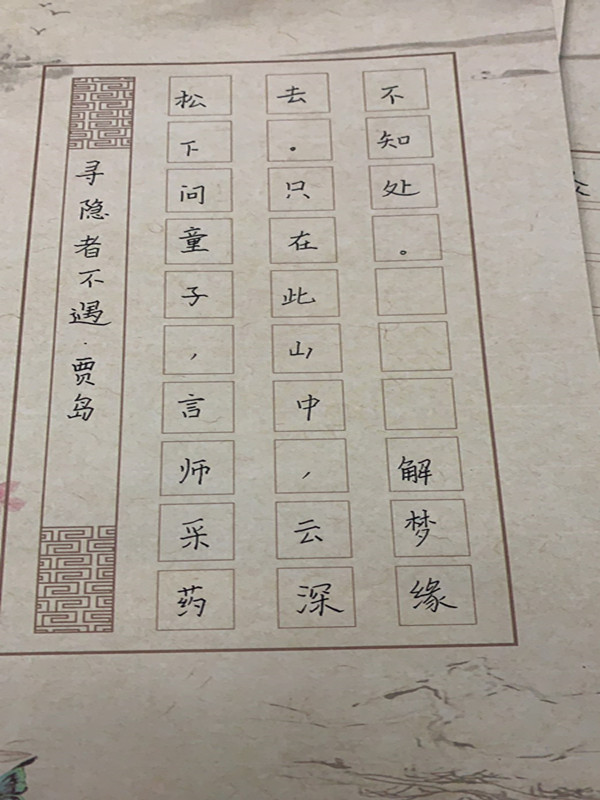 寻隐者不遇·贾岛
松下问童子,言师采药
去。只在此山中,云深
不知处。
解梦缘